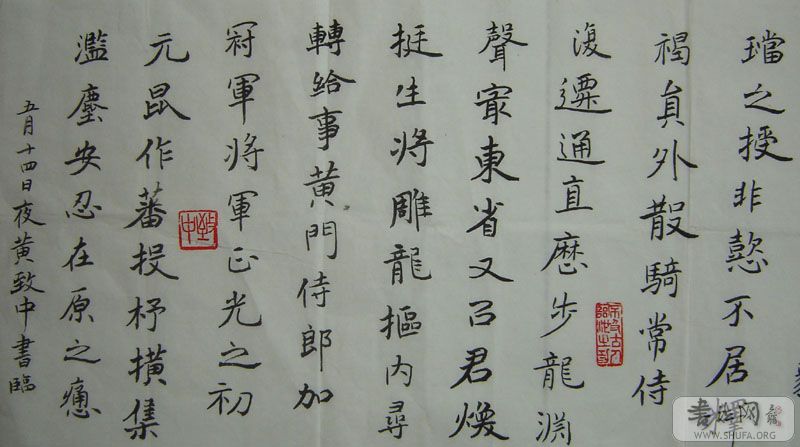 璫之授非懿不居釋
褐員外散騎常侍
復遷通直歷步龍淵
聲冣東省又㠯君煥
挺生將雕龍樞内尋
轉給事黄門侍郎加
冠軍將軍正光之初
元昆作蕃投杼横集
濫塵安忍在原之慟
五月十四日夜黄致中書臨
书法网
WWW.SHUFA.ORG